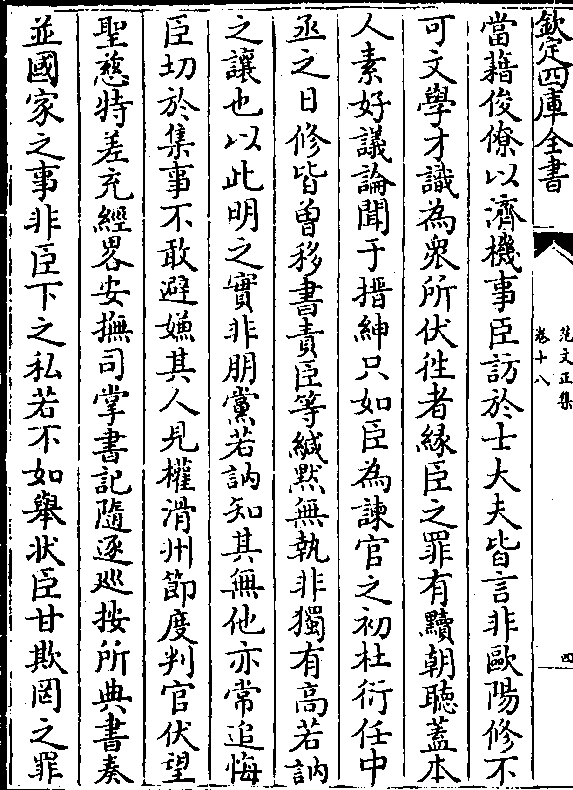 欽定四庫全書
范文正集
卷十八
四
當藉俊僚以濟機事臣訪於士大夫皆言非歐陽修不
可文學才識為衆所伏徃者縁臣之罪有黷朝聽蓋本
人素好議論聞于搢紳只如臣為諫官之初杜衍任中
丞之日修皆曽移書責臣等緘黙無執非獨有髙若訥
之讓也以此明之實非朋黨若訥知其無他亦常追悔
臣切於集事不敢避嫌其人見權滑州節度判官伏望
聖慈特差充經畧安撫司掌書記隨逐廵按所典書奏
並國家之事非臣下之私若不如舉狀臣甘欺罔之罪